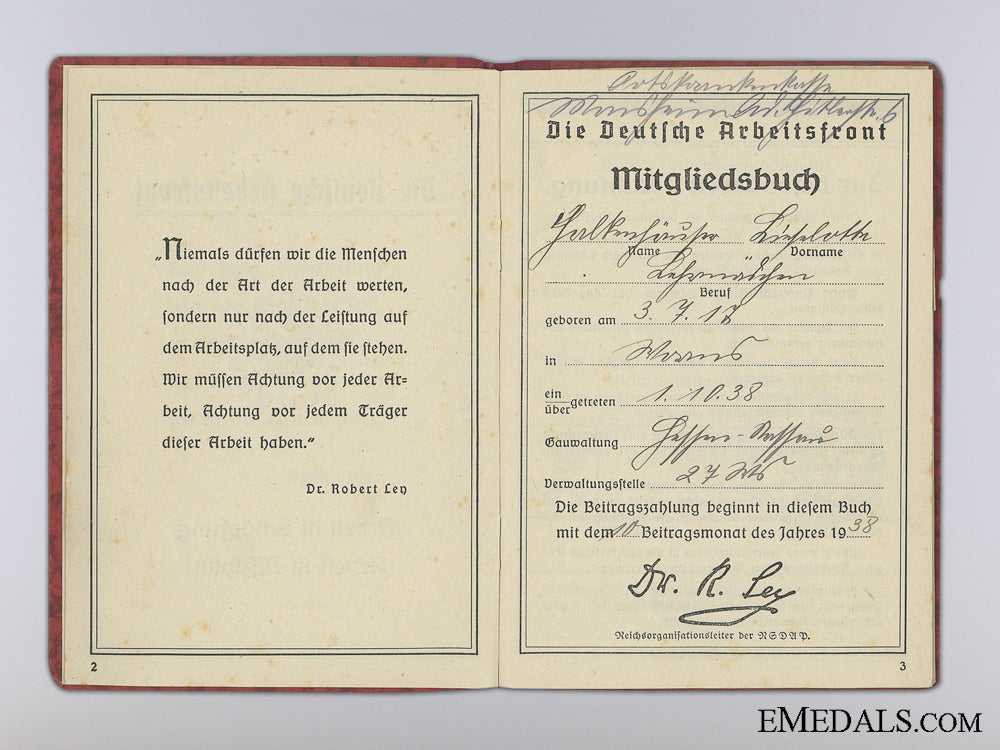 „Niemals dürfen wir die Menschen
nach der Art der Arbeit werten,
sondern nur nach der Leistung auf
dem Arbeitsplatz, auf dem sie stehen.
Wir müssen Achtung vor jeder Ar=
beit, Achtung vor jedem Träger
dieser Arbeit haben.“
Dr. Robert Ley
2
Ortskrankenkasse
Monsheim Ad. Hitlerstr. 6
Die Deutsche Arbeitsfront
Mitgliedsbuch
Falkenhäuser Lieselotte
Name Vorname
Lehrmädchen
Beruf
geboren am 3. 7. 18
in Worms
ein
über getreten 1. 10. 38
Gauwaltung Hessen-Nassau
Verwaltungsstelle 27
Die Beitragszahlung beginnt in diesem Buch
mit dem 10 Beitragsmonat des Jahres 1938
Dr. R. Ley
Reichsorganisationsleiter der NSDAP.
3
EMEDALS.COM